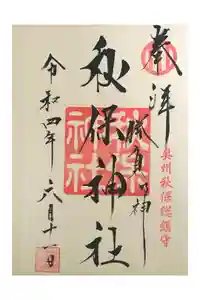 奉拝
奥州秋保総鎮守
勝負の神
秋保神社
令和四年
六月十一日